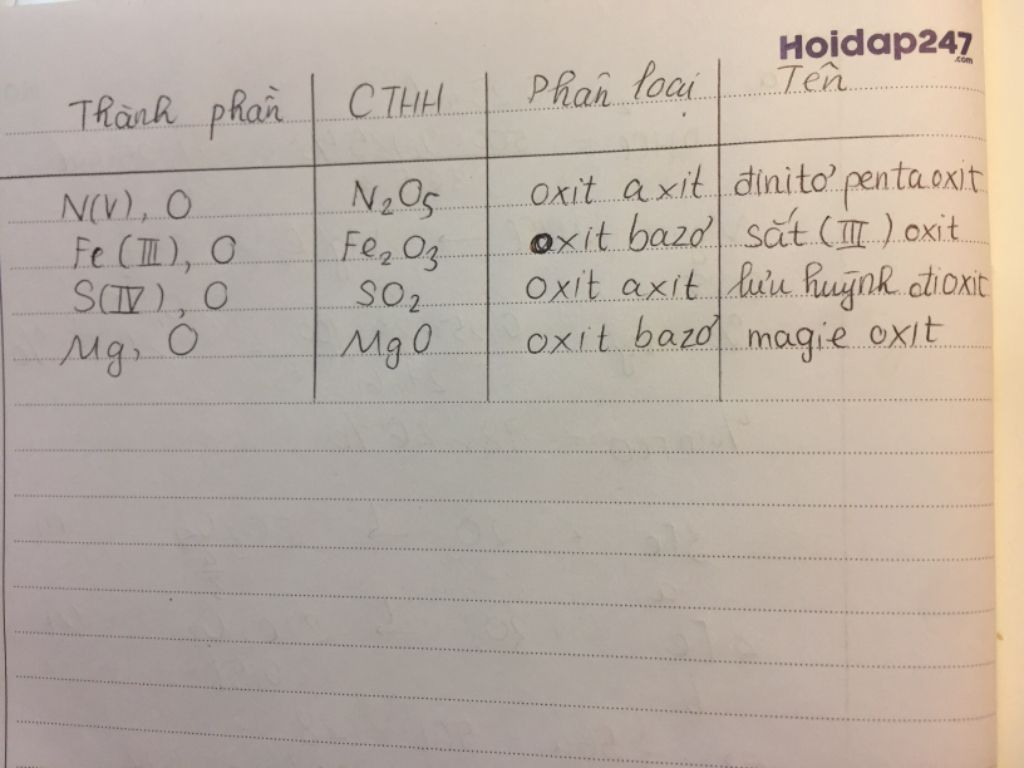 Hoidap247
.com
Thành phần CTHH Phân loại Tên
N(V), O N₂O₅ oxit axit đinitơ pentaoxit
Fe (III), O Fe₂O₃ oxit bazơ sắt (III) oxit
S(IV), O SO₂ oxit axit lưu huỳnh đioxit
Mg, O MgO oxit bazơ magie oxit